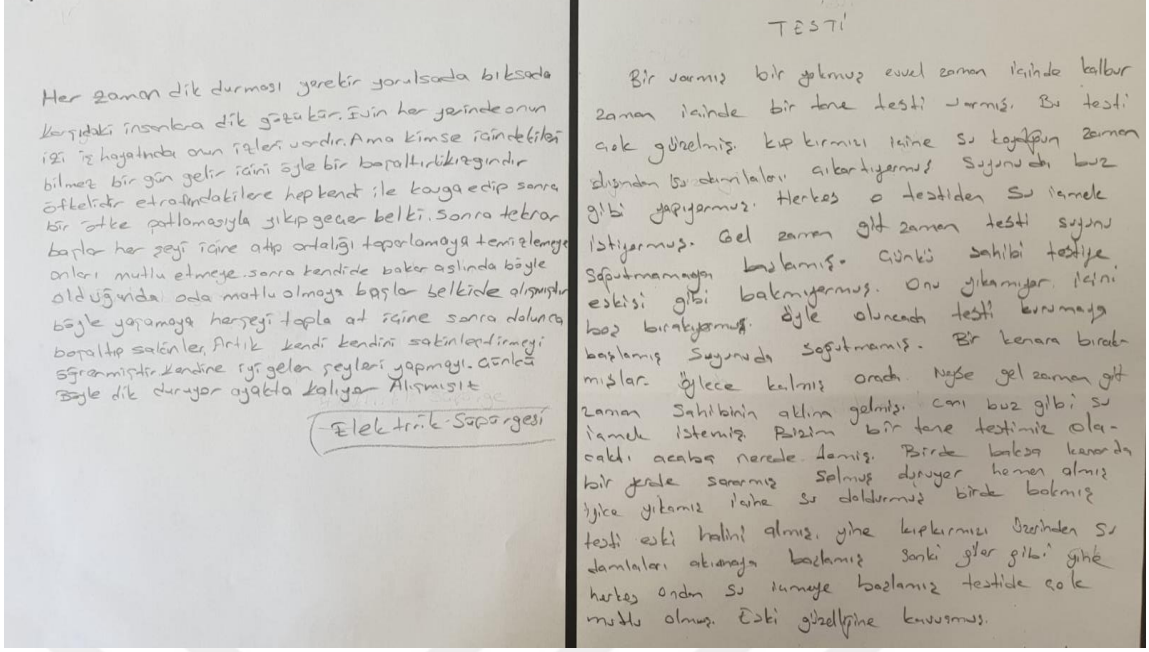 Her zaman dik durması gerekir yorulsada bıksada
karşıdaki insanlara dik gözükür. Evin her yerinde onun
izi iş hayatında onun izleri vardır. Ama kimse içindekileri
bilmez bir gün gelir içini öyle bir boşaltırki kızgındır
öfkelidir etrafındakilere hep kendi ile kavga edip sonra
bir öfke patlamasıyla yıkıp geçer belki. Sonra tekrar
başlar her şeyi içine atıp ortalığı toparlamaya temizlemeye
onları mutlu etmeye. sonra kendide bakar aslında böyle
olduğunda oda mutlu olmaya başlar belkide alışmıştır
böyle yaşamaya herşeyi topla at içine sonra dolunca
boşaltıp sakinler. Artık kendi kendini sakinleştirmeyi
öğrenmiştir kendine iyi gelen şeyleri yapmayı. Çünkü
Böyle dik duruyor ayakta kalıyor Alışmışıt
Elektrik Süpürgesi
TESTİ
Bir varmış bir yokmuş evvel zaman içinde kalbur
zaman içinde bir tane testi varmış. Bu testi
çok güzelmiş. kıp kırmızı içine su koyduğun zaman
dışından su damlaları çıkartıyormuş Suyunuda buz
gibi yapıyormuş. Herkes o testiden su içmek
istiyormuş. Gel zaman git zaman testi suyunu
Soğutmamaya başlamış. Çünkü sahibi testiye
eskisi gibi bakmıyormuş. Onu yıkamıyor. içini
boş bırakıyormuş. Öyle oluncada testi kurumaya
başlamış Suyunuda soğutmamış. Bir kenara bırak-
mışlar. Öylece kalmış orada. Neyse gel zaman git
zaman Sahibinin aklına gelmiş. canı buz gibi su
içmek istemiş. Bizim bir tane testimiz ola-
caktı acaba nerede demiş. Birde baksa kenarda
bir yerde sararmış Solmuş duruyor hemen almış
iyice yıkamış içine su doldurmuş birde bakmış
testi eski halini almış. yine kıpkırmızı üzerinden su
damlaları akıtmaya başlamış Sanki güler gibi yine
herkes ondan su içmeye başlamış testide çok
mutlu olmuş. Eski güzelliğine kavuşmuş.